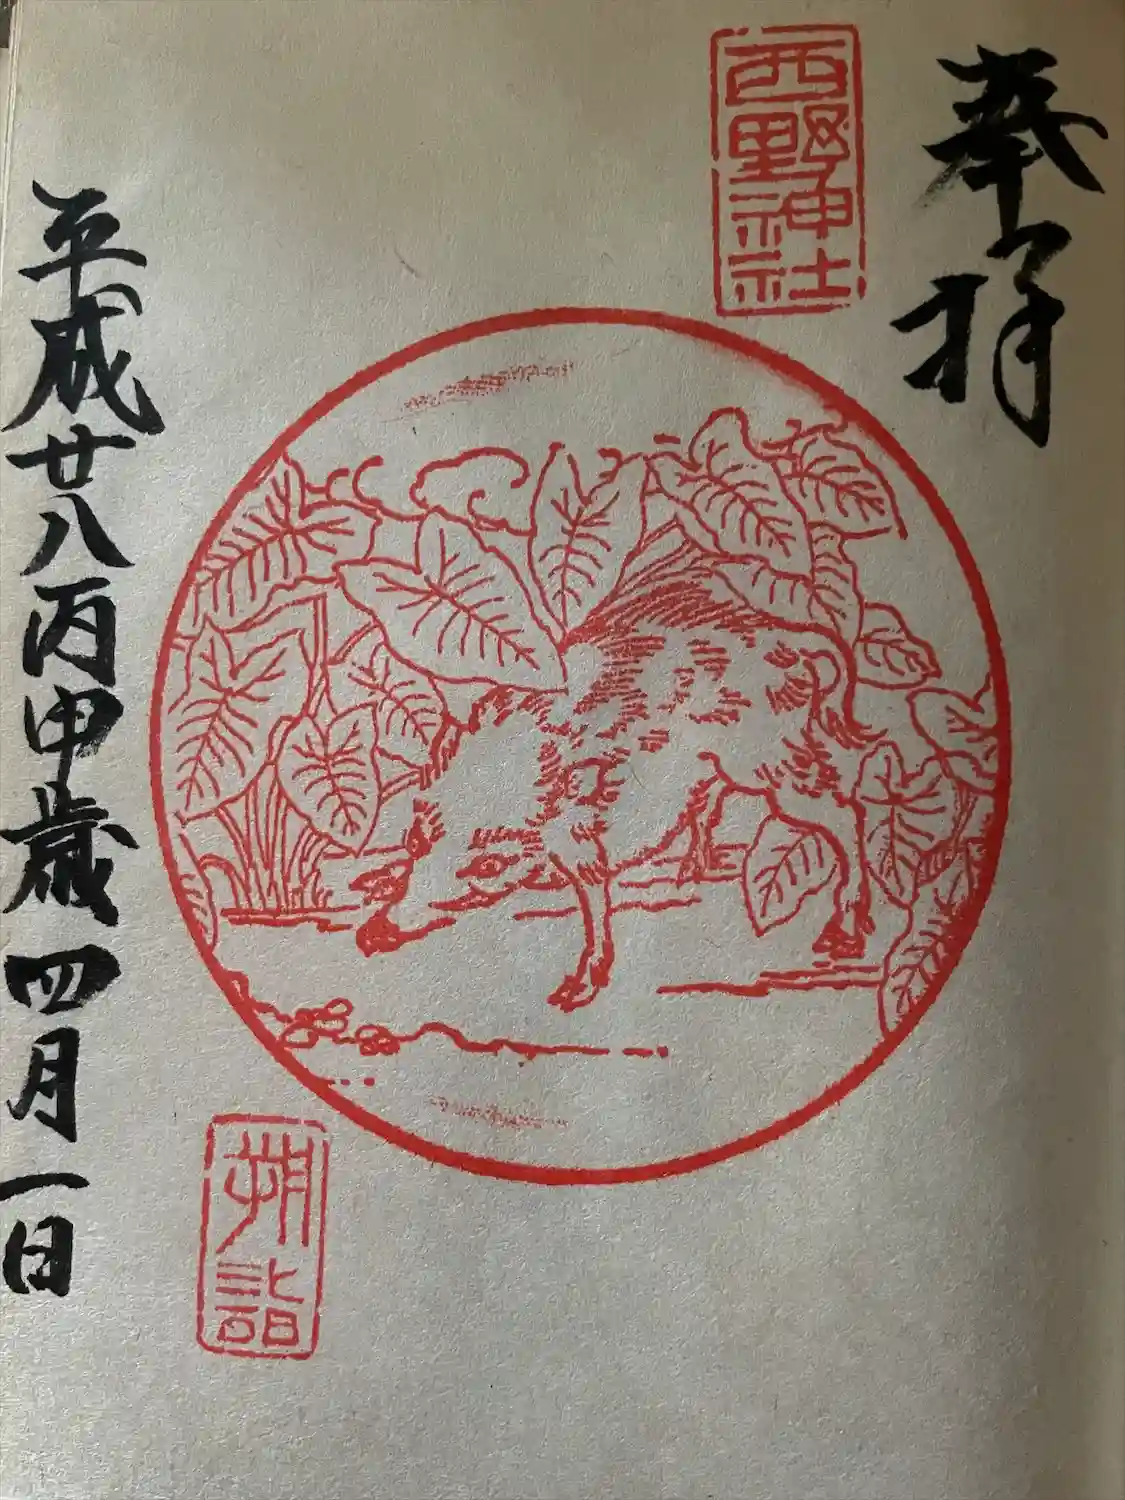 奉拝
西野神社
朔詣
平成廿八丙申歳四月一日